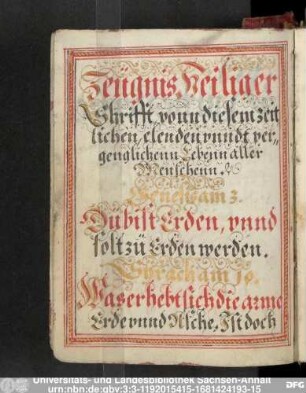 Zeügnis, Heiliger
Schrifft, vonn diesem zeit
lichen, elenden vnndt ver„
genglichenn Lebenn aller
Menschenn.
Genesis am 3.
Du bist Erden, vnnd
solt zü Erden werden.
Syrach am 10.
Was erhebt sich die arme
Erde vnnd Asche, Ist doch
Universitäts- und Landesbibliothek Sachsen-Anhalt
urn:nbn:de:gbv:3:3-1192015415-1681424193-15
DFG